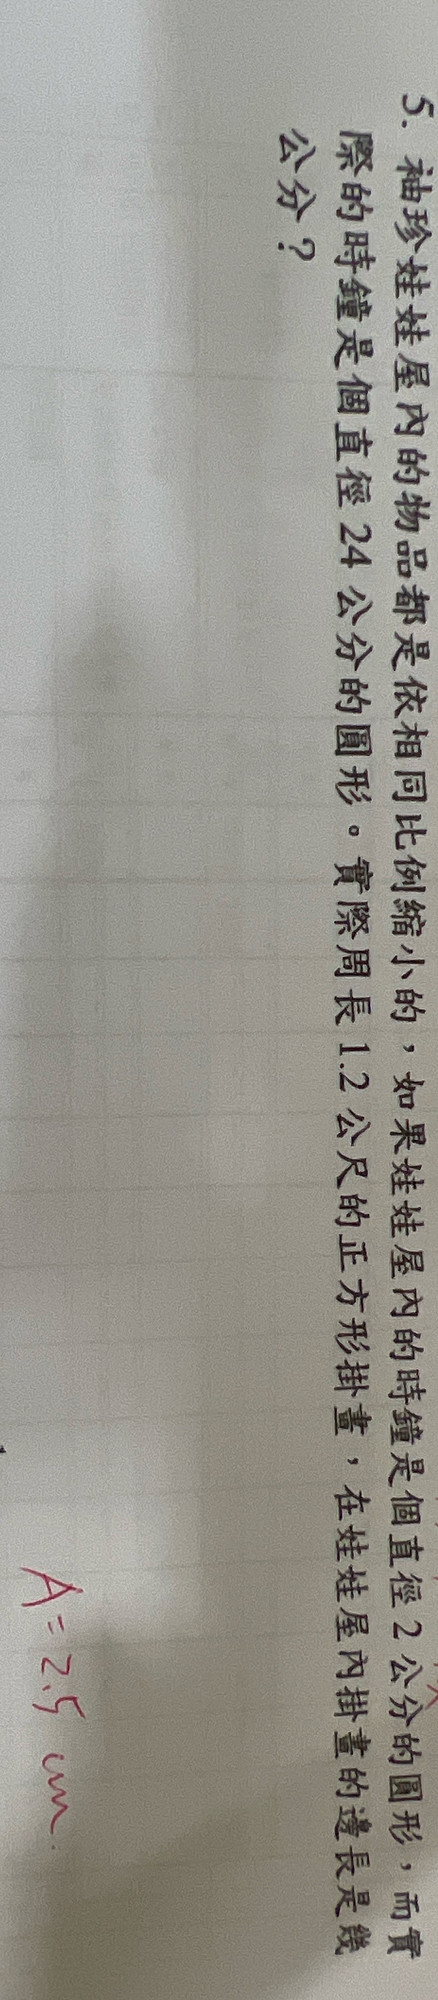 5. 袖珍娃娃屋內的物品都是依相同比例縮小的，如果娃娃屋內的時鐘是個直徑 2 公分的圓形，而實
際的時鐘是個直徑 24 公分的圓形。實際周長 1.2 公尺的正方形掛畫，在娃娃屋內掛畫的邊長是幾
公分？
A = 2.5 cm